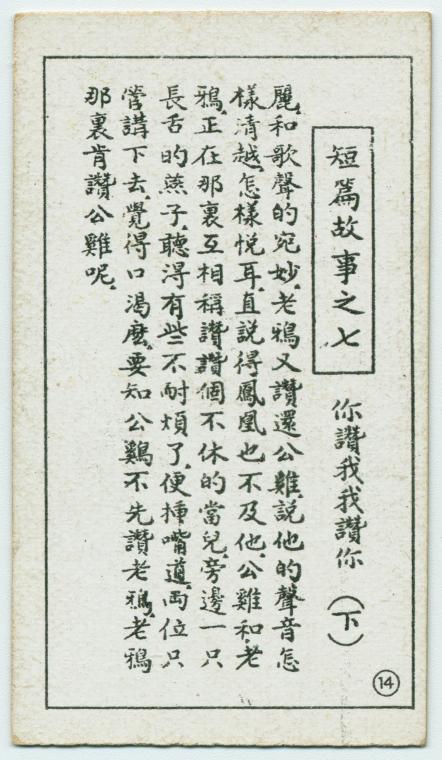 短篇故事之七
你讚我我讚你（下）
麗和歌聲的宛妙、老鴉又讚還公雞、説他的聲音怎
樣清越、怎樣悦耳、直説得鳳凰也不及他、公雞和老
鴉、正在那裏互相稱讚讚個不休的當兒、旁邊一只
長舌的燕子、聽得有些不耐煩了、便揷嘴道、両位只
管講下去、覺得口渴麽、要知公鷄不先讚老鴉、老鴉
那裏肯讚公雞呢、
14